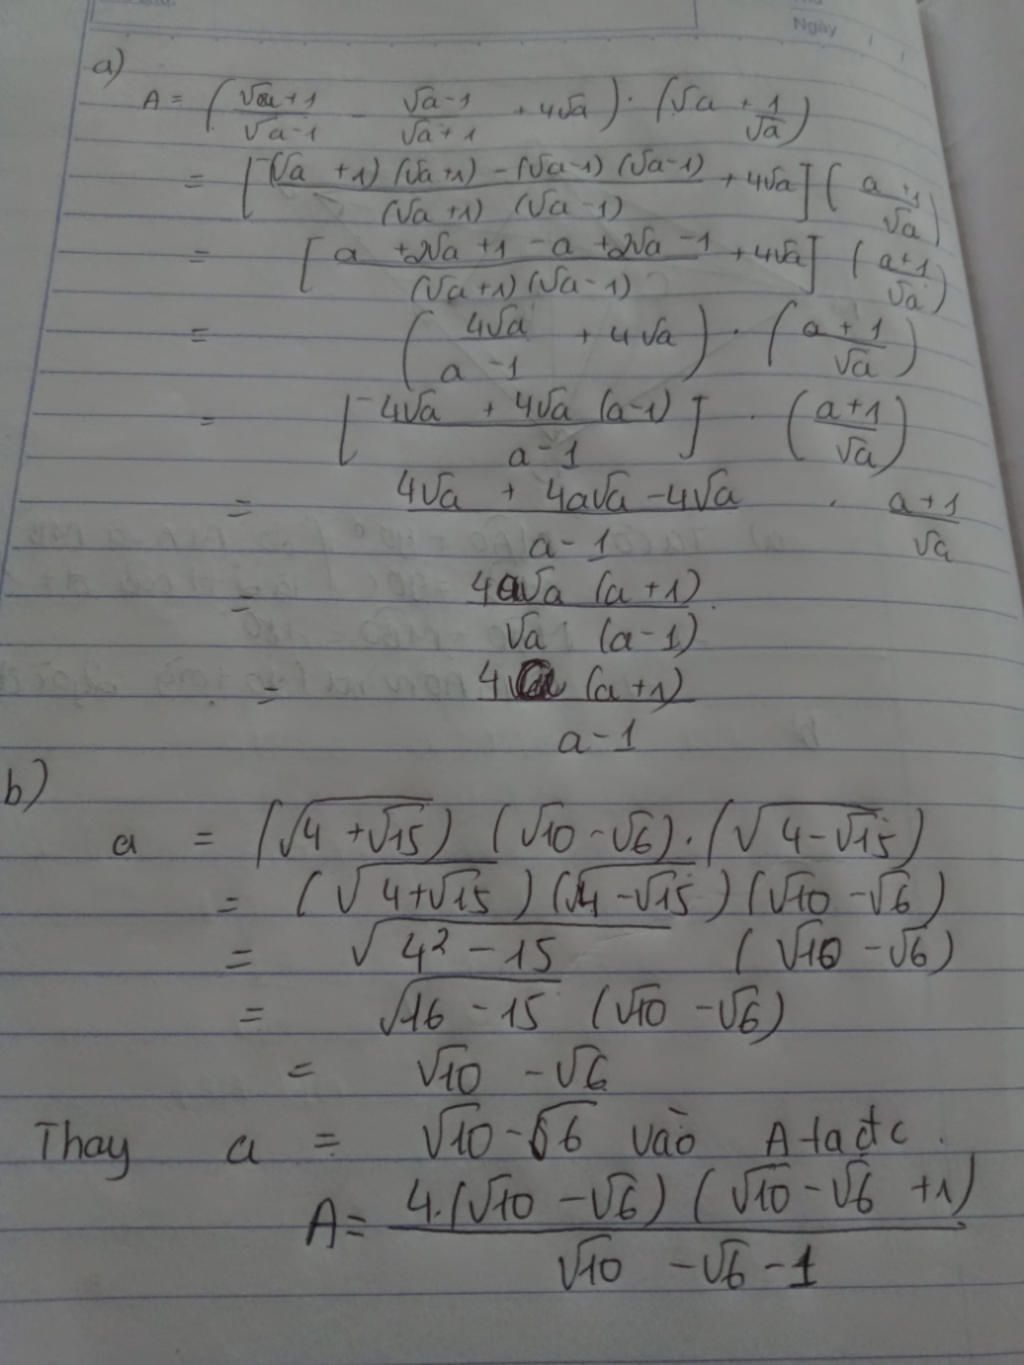 Ngày
a)
A = ( (√a+1)/(√a-1) - (√a-1)/(√a+1) + 4√a ) . ( √a + 1/√a )
= [ ((√a +1) (√a+1) - (√a-1) (√a-1))/((√a+1) (√a-1)) + 4√a ] ( (a+1)/√a )
= [ (a +2√a +1 -a +2√a -1)/((√a+1)(√a-1)) + 4√a ] ( (a+1)/√a )
= ( 4√a/(a-1) + 4√a ) . ( (a+1)/√a )
= [ (4√a + 4√a (a-1))/(a-1) ] . ( (a+1)/√a )
= (4√a + 4a√a -4√a)/(a-1) . (a+1)/√a
= (4a√a (a+1))/(√a (a-1))
= (4a (a+1))/(a-1)
b)
a = (√(4+√15)) (√10-√6).(√(4-√15))
= (√(4+√15)) (√(4-√15)) (√10 -√6)
= √(4² - 15) (√10 -√6)
= √(16 - 15) (√10 -√6)
= √10 -√6
Thay a = √10-√6 vào A ta đc .
A = (4.(√10 -√6) (√10-√6 +1))/(√10 -√6 -1)